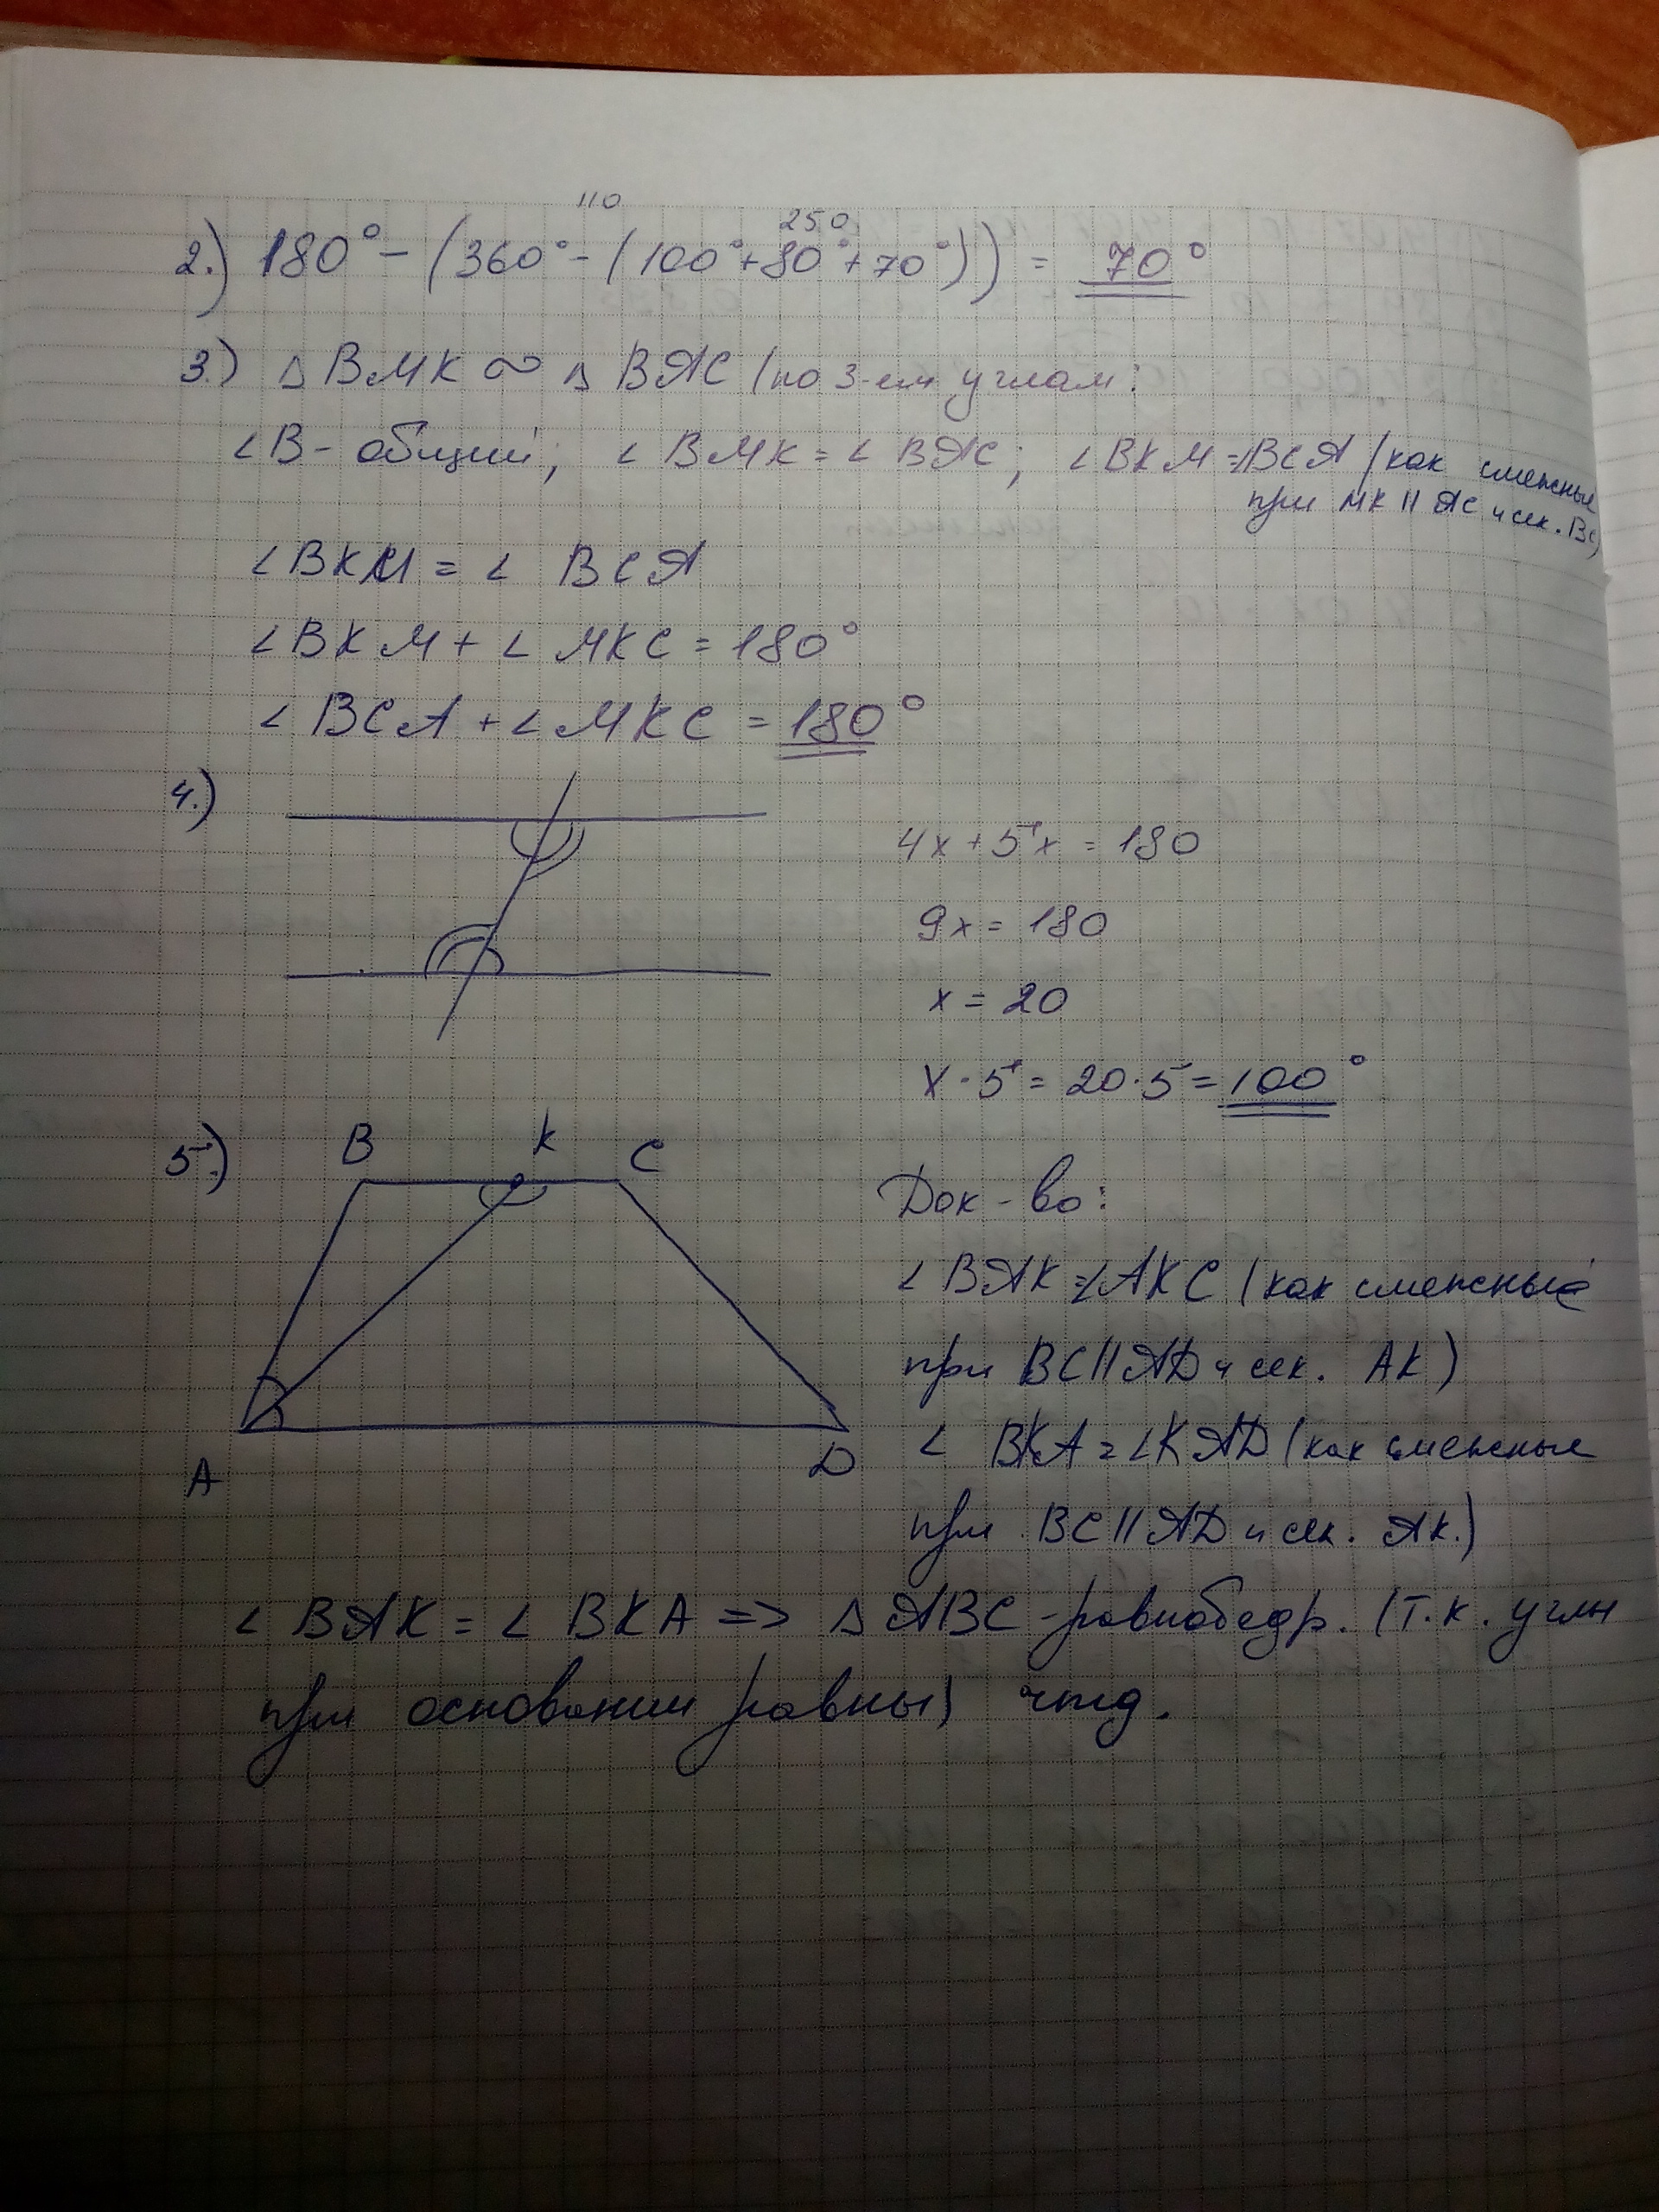 110
250
2.) 180° - (360° - (100° + 80° + 70°)) = 70°
3.) △ BMK ∾ △ BAC (по 3-ем углам:
∠B - общий; ∠ BMK = ∠ BAC; ∠BKM = ∠BCA (как смежные
при MK || AC и сек. BC)
∠BKM = ∠ BCA
∠BKM + ∠ MKC = 180°
∠ BCA + ∠ MKC = 180°
4.)
4x + 5x = 180
9x = 180
x = 20
x · 5 = 20 · 5 = 100°
5.)
B K C
A D
Док-во:
∠ BAK = ∠AKC (как смежные
при BC || AD и сек. AK)
∠ BKA = ∠KAD (как смежные
при BC || AD и сек. AK.)
∠ BAK = ∠ BKA => △ ABC - равнобедр. (т.к. углы
при основании равны) чтд.